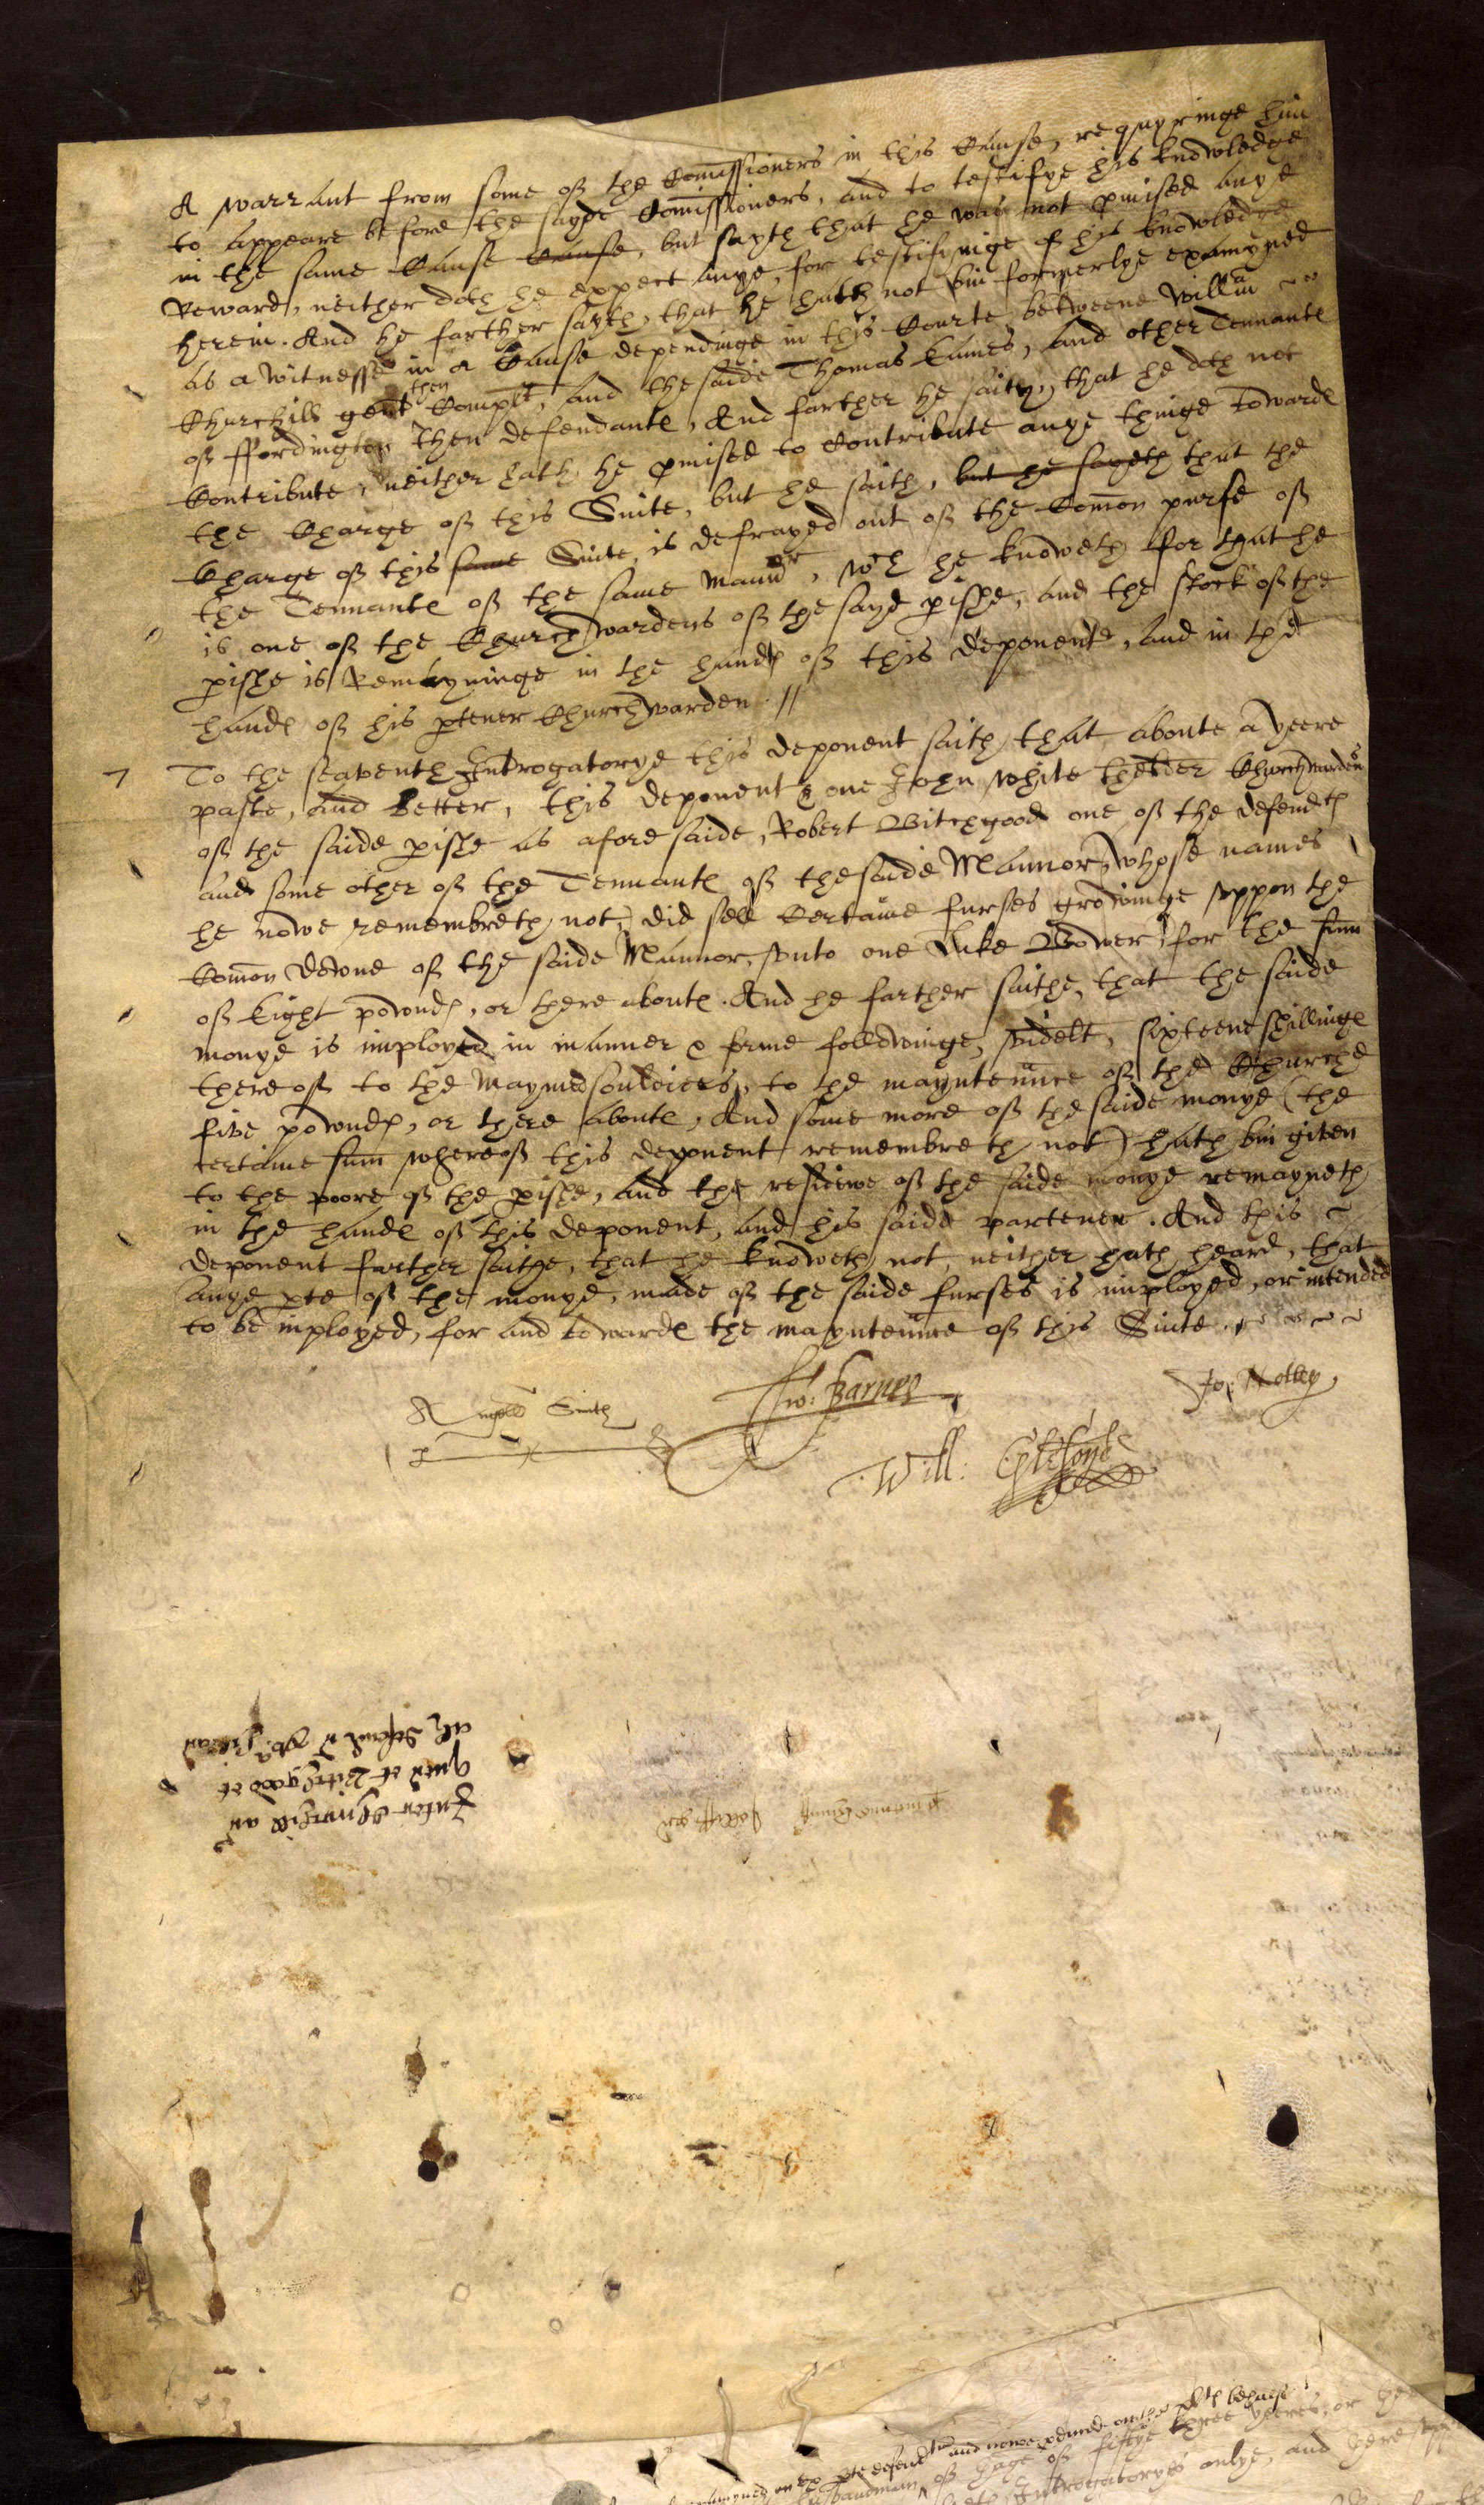 A warrant from some of the Comissioners in this Cause, requyringe him
to appeare before the sayde Comissioners, and to testifye his knowledge
in the same Cause Cause, but sayth that he was not pmised anye
Reward, neither doth he expect anye, for testifyinge of his knowledge
herein. And he farther sayth, that he hath not bin formerlye examyned
as a witnesse in a Cause dependinge in this Courte, betweene Willm
Churchill gent then Complt, and the saide Thomas Eames, and other Tennants
of ffordington then defendants, And farther he saith, that he doth not
Contribute, neither hath he pmised to Contribute anye thinge towards
the Charge of this Suite, but he saith, but he sayeth that the
Charge of this same Suite, is defrayed out of the Comon purse of
the Tennants of the same Mannor, wch he knoweth for that he
is one of the Churchwardens of the sayde pishe, and the stock of the
pishe is Remayninge in the hands of this deponente, and in the
hands of his ptener Churchwarden. //
7 To the seaventh Introgatorye this deponent saith that aboute a yeere
paste, and better, this deponent & one John White thelder Churchwardens
of the saide pishe as afore saide, Robert Bitchgood one of the defendts
and some other of the Tennants of the saide Mannor, whose names
he nowe remembreth not, did sell Certaine furses growinge uppon the
Comon downe of the saide Mannor, unto one Luke Bower, for the sum
of Eight pownds, or there abouts. And he farther saithe, that the saide
monye is imployed in manner & forme followinge, videlt, sixteene shillings
thereof to the Maymed souldiers, to the mayntenance of the Churche
five pownds, or there abouts, And some more of the saide monye (the
certaine sum whereof this deponent remembreth not) hath bin given
to the poore of the pishe, and the residewe of the saide monye remayneth
in the hands of this deponent, and his saide partener. And this
deponent further saithe, that he knoweth not, neither hath heard, that
anye pte of the monye, made of the saide furses is imployed, or intended
to be imployed, for and towards the mayntenance of this Suite.
Angell Smith
Jo: Notley
Will:
Inter Churchill
quer et Bitchgood et
al defend
and nowe
of thage of fiftye three yeeres, or
Introgatoryes onlye, and